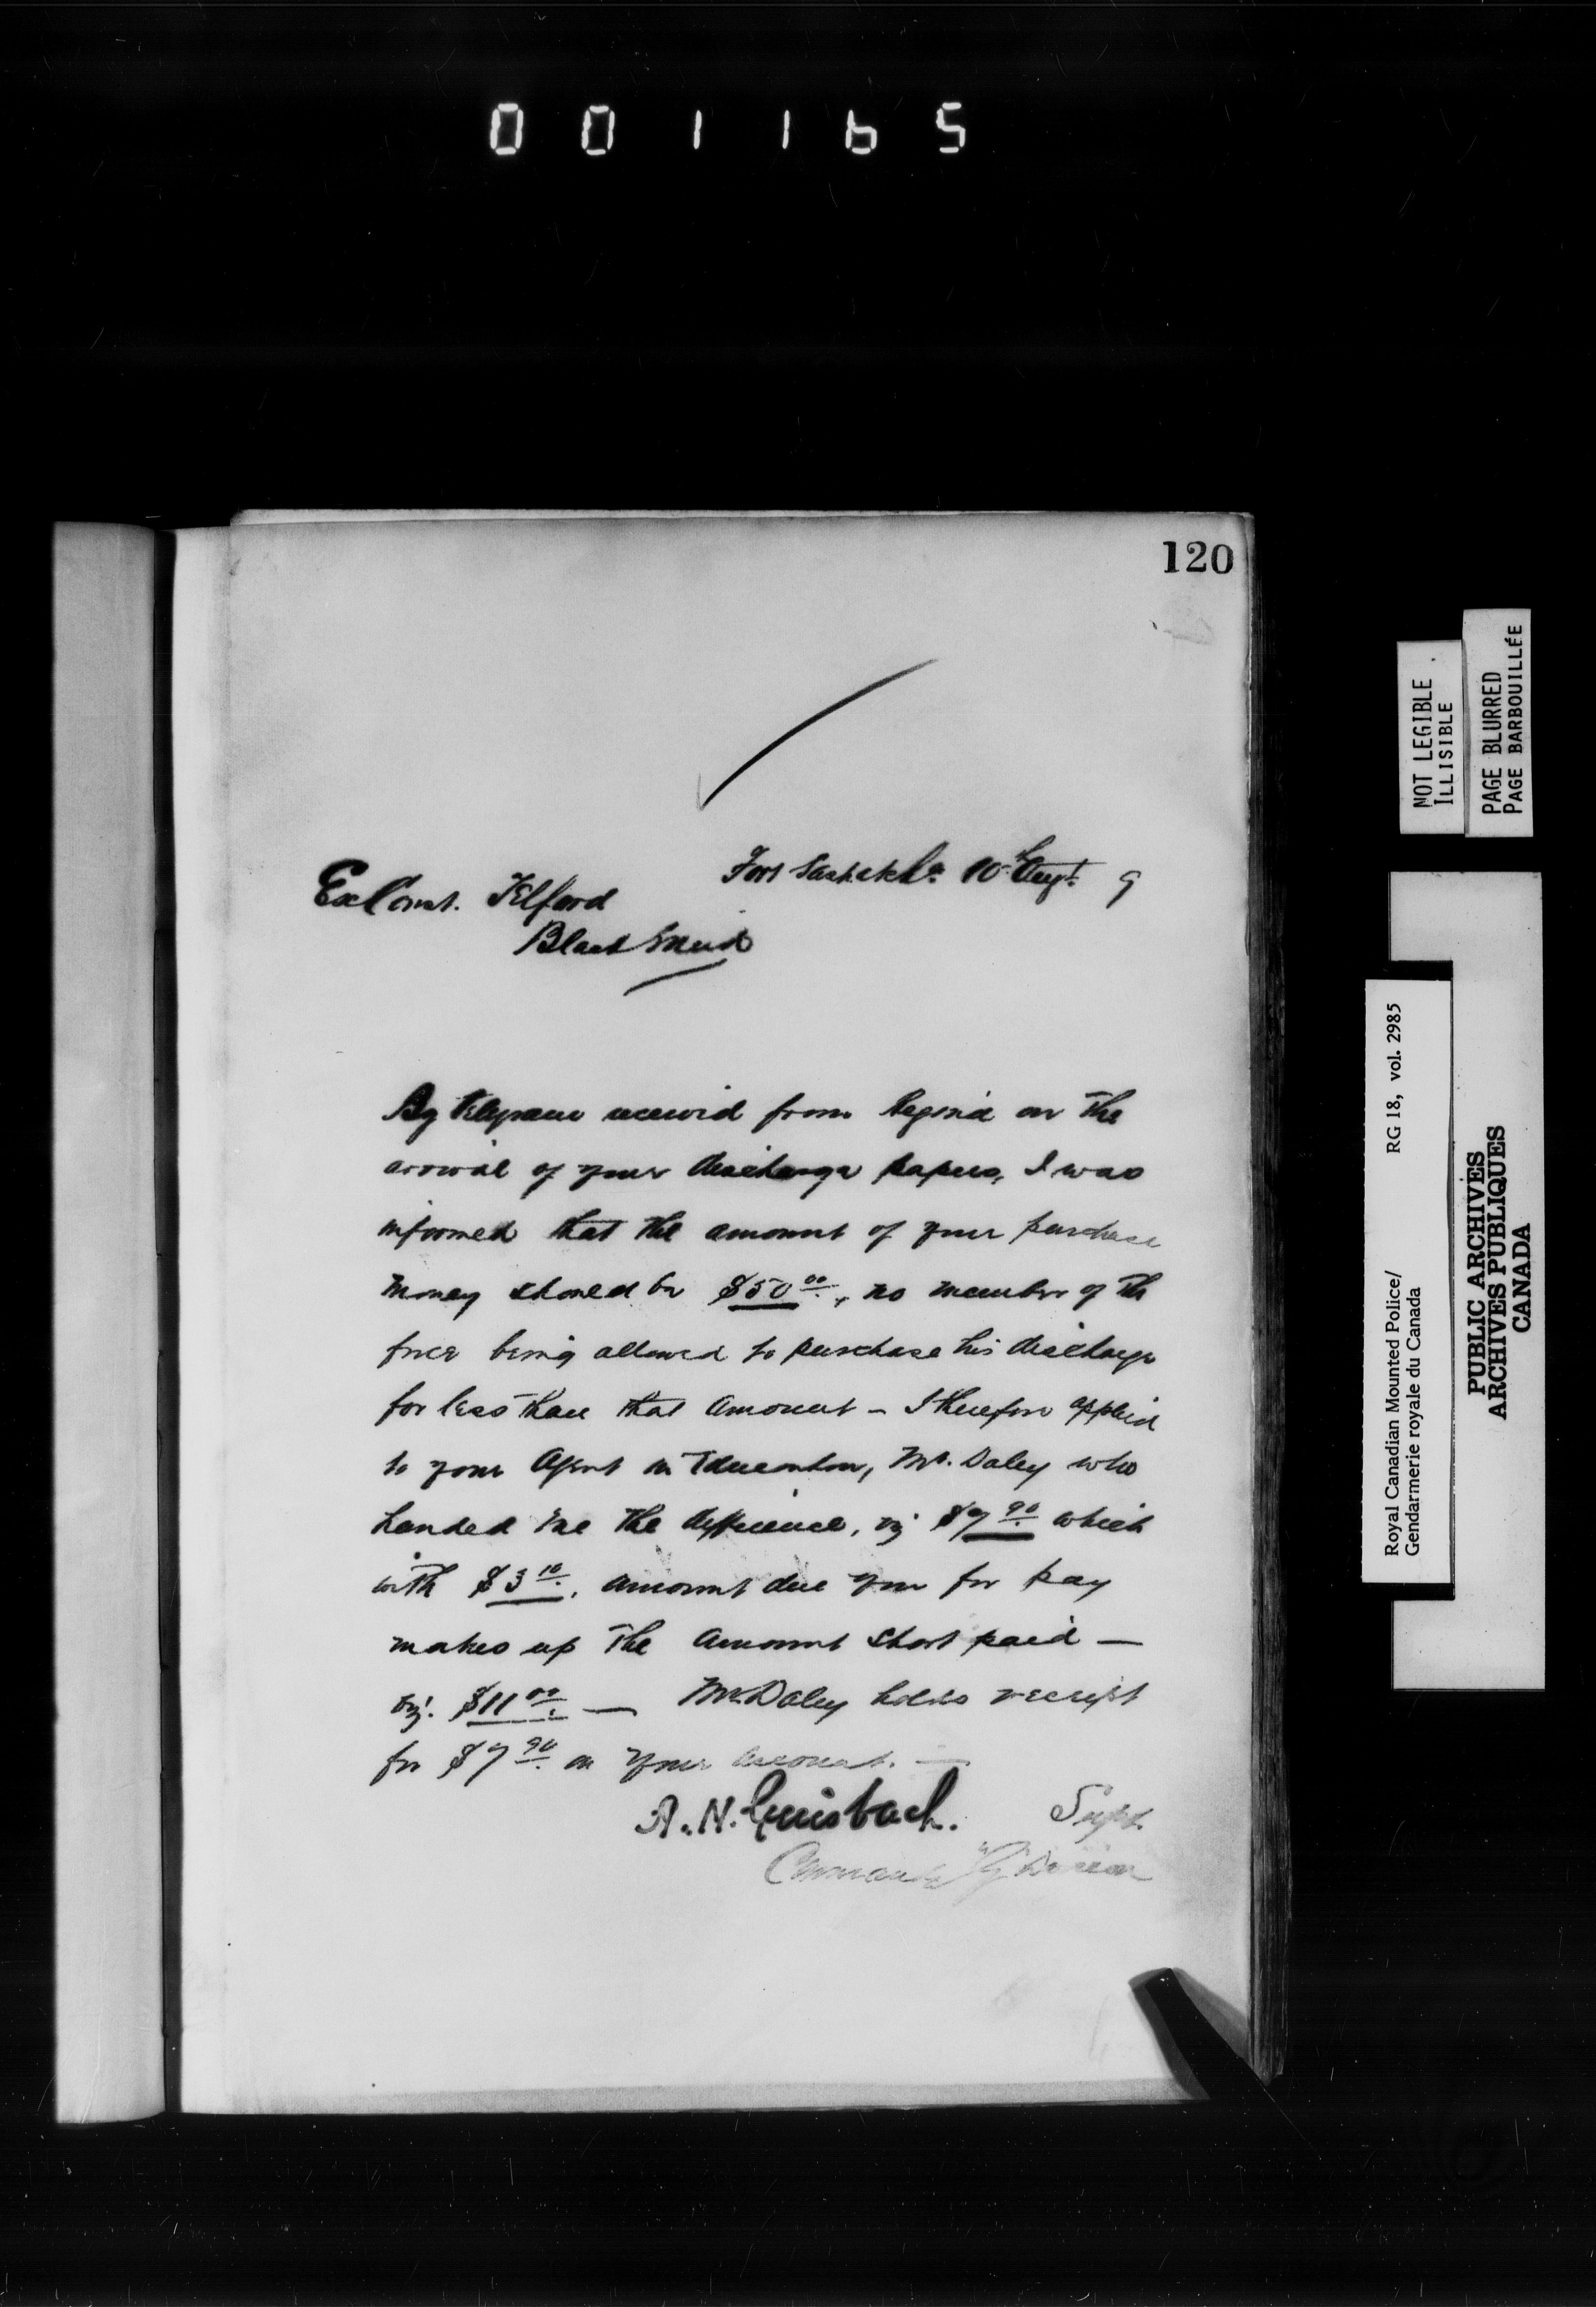 001165
120
Fort Saskatchn. 10th Augt. 9
Ex Const. Telford
Black Mud
By telegram received from Regina on the
arrival of your discharge papers, I was
informed that the amount of your purchase
money should be $50.00, no member of the
force being allowed to purchase his discharge
for less than that amount - I therefore applied
to your agent in Edmonton, Mr. Daley who
handed me the difference, viz $7.90 which
with $3.10, amount due you for pay
makes up the amount short paid —
viz: $11.00 — Mr. Daley holds receipt
for $7.90 on your account. —
A. H. Griesbach. Supt.
Commandg "G" Division
NOT LEGIBLE
ILLISIBLE
PAGE BLURRED
PAGE BARBOUILLÉE
Royal Canadian Mounted Police/ RG 18, vol. 2985
Gendarmerie royale du Canada
PUBLIC ARCHIVES
ARCHIVES PUBLIQUES
CANADA